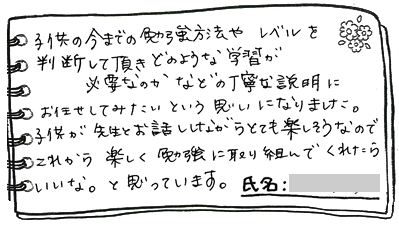 子供の今までの勉強方法や レベルを
判断して頂きどのような学習が
必要なのか などの丁寧な説明に
お任せしてみたいという思いになりました。
子供が先生とお話ししながらとても楽しそうなので
これから 楽しく 勉強に取り組んでくれたら
いいな。と思っています。 氏名: